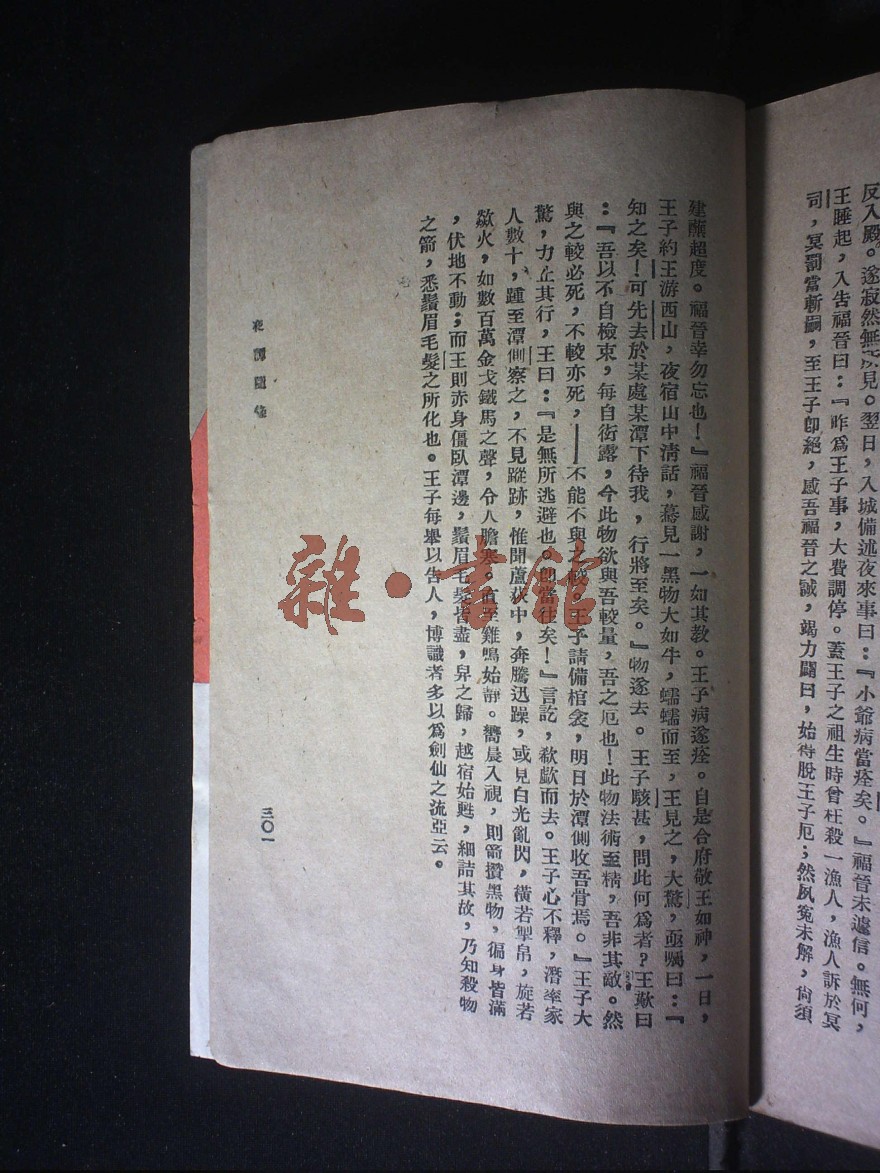 反入殿。遂寂然無所見。翌日，入城備述夜來事曰：『小爺病當痊矣。』福晉未遽信。無何，
王睡起，入告福晉曰：『昨爲王子事，大費調停。蓋王子之祖生時曾枉殺一漁人，漁人訴於冥
司，冥罰當斬嗣，至王子卽絕，感吾福晉之誠，竭力鬪曰，始得脫王子厄；然夙冤未解，尙須
建醮超度。福晉幸勿忘也！』福晉感謝，一如其教。王子病遂痊。自是合府敬王如神，一日，
王子約王游西山，夜宿山中淸話，驀見一黑物大如牛，蠕蠕而至，王見之，大驚，亟囑曰：『
知之矣！可先去於某處某潭下待我，行將至矣。』物遂去。王子駭甚，問此何爲者？王歎曰
：『吾以不自檢束，每自衒露，今此物欲與吾較量，吾之厄也！此物法術至精，吾非其敵。然
與之較必死，不較亦死，——不能不與之戰。王子請備棺衾，明日於潭側收吾骨焉。』王子大
驚，力止其行，王曰：『是無所逃避也。卽當往矣！』言訖，欷歔而去。王子心不釋，潛率家
人數十，踵至潭側察之，不見蹤跡，惟聞蘆荻中，奔騰迅躁，或見白光亂閃，橫若掣帛，旋若
歘火，如數百萬金戈鐵馬之聲，令人膽寒。直至雞鳴始靜。嚮晨入視，則箭攢黑物，徧身皆滿
，伏地不動；而王則赤身僵臥潭邊，鬚眉毛髮皆盡，舁之歸，越宿始甦，細詰其故，乃知殺物
之箭，悉鬚眉毛髮之所化也。王子每舉以告人，博識者多以爲劍仙之流亞云。
夜譚隨錄
三〇一
雜·書館